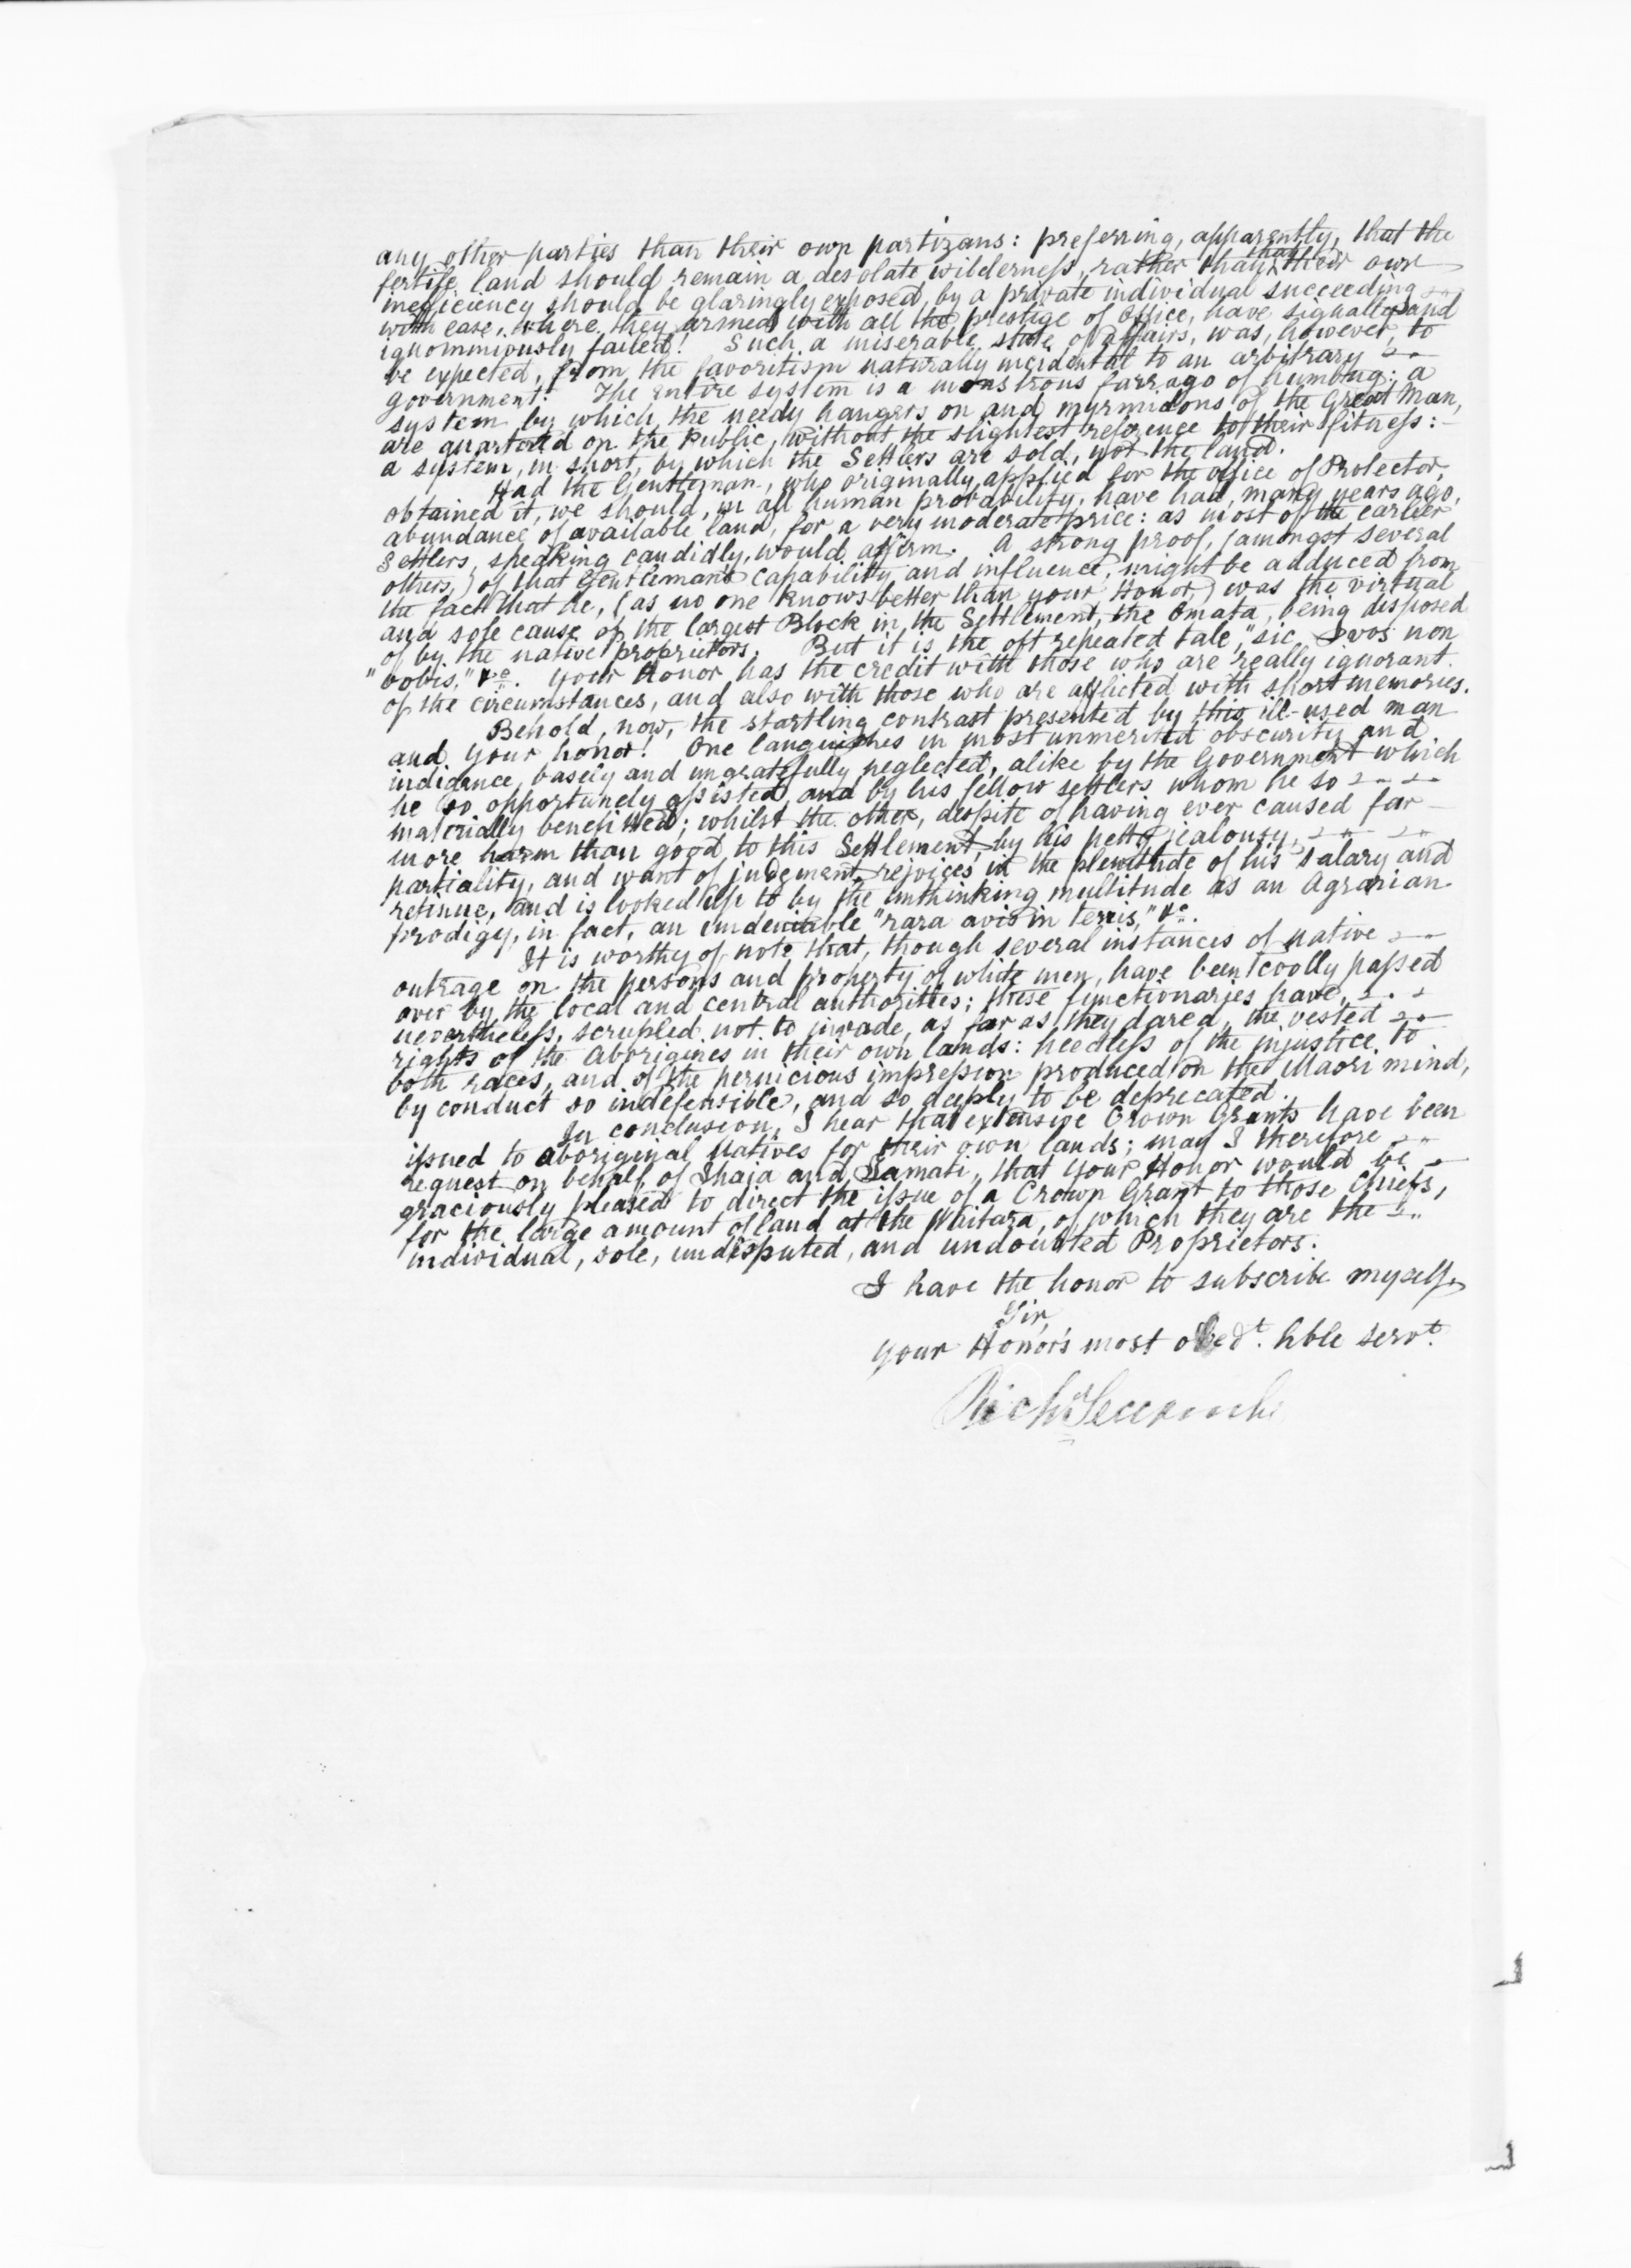 any other parties than their own partizans: preferring, apparently, that the
fertile land should remain a desolate wilderness, rather than that their own
inefficiency should be glaringly exposed, by a private individual succeeding
with ease, where they, armed with all the prestige of Office, have signally and
ignominiously failed! Such a miserable state of affairs, was, however, to
be expected, from the favoritism naturally incidental to an arbitrary
government! The entire system is a monstrous farrago of humbug: a
system by which, the needy hangers on and myrmidons of the Great Man,
are quartered on the Public, without the slightest reference to their fitness:-
a system, in short, by which the Settlers are sold, not the land.
Had the Gentleman, who originally applied for the office of Protector,
obtained it, we should, in all human probability, have had, many years ago,
abundance of available land, for a very moderate price: as most of the earlier
Settlers, speaking candidly, would affirm. A strong proof, (amongst several
others,) of that Gentleman's capability and influence, might be adduced from
the fact that he, (as no one knows better than your Honor,) was the virtual
and sole cause of the largest Block in the Settlement, the Omata, being disposed
of by the native proprietors. But it is the oft repeated tale, "sic vos non
"vobis," &c. Your Honor has the credit with those who are really ignorant
of the circumstances, and also with those who are afflicted with short memories.
Behold, now, the startling contrast presented by this ill-used man
and your honor! One languishes in most unmerited obscurity and
indigence, basely and ungratefully neglected, alike by the Government which
he so opportunely assisted, and by his fellow settlers whom he so
materially benefitted; whilst the other, despite of having ever caused far
more harm than good to this Settlement, by his petty jealousy,
partiality, and want of judgment, rejoices in the plenitude of his salary and
retinue, and is looked up to by the unthinking multitude as an Agrarian
prodigy, in fact, an undeniable "rara avis in terris," &c.
It is worthy of note, that, though several instances of native
outrage on the persons and property of white men, have been coolly passed
over by the local and central authorities; these functionaries have,
nevertheless, scrupled not to invade, as far as they dared, the vested
rights of the Aborigines in their own lands: heedless of the injustice to
both races, and of the pernicious impression produced on the Maori mind,
by conduct so indefensible, and so deeply to be deprecated.
In conclusion, I hear that extensive Crown Grants have been
issued to aboriginal Natives for their own lands; may I therefore
request on behalf of Ihaia and Tamati, that Your Honor would be
graciously pleased to direct the issue of a Crown Grant to those Chiefs,
for the large amount of land at the Waitara, of which they are the
individual, sole, undisputed, and undoubted Proprietors.
I have the honor to subscribe myself,
Sir,
Your Honor's most obedt. hble servt.
Richd Seccombe